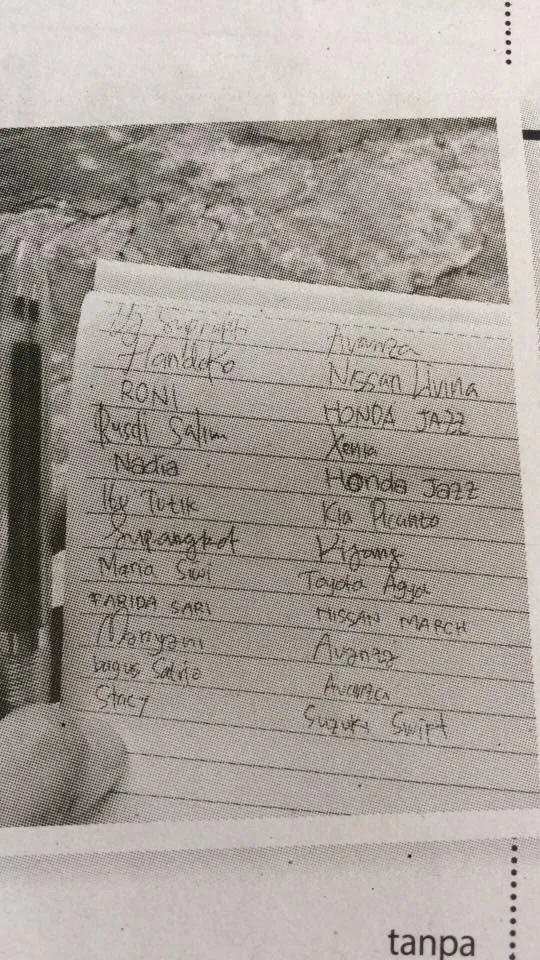 Suprapti Avanza
Handoko Nissan Livina
RONI HONDA JAZZ
Rusdi Salim Xenia
Nadia Honda JAZZ
Ibu Tutik Kia Picanto
Supangkat Kijang
Maria Siwi Toyota Agya
FARIDA SARI NISSAN MARCH
Maryani Avanza
bagus Satrio Avanza
Stacy Suzuki Swift
tanpa